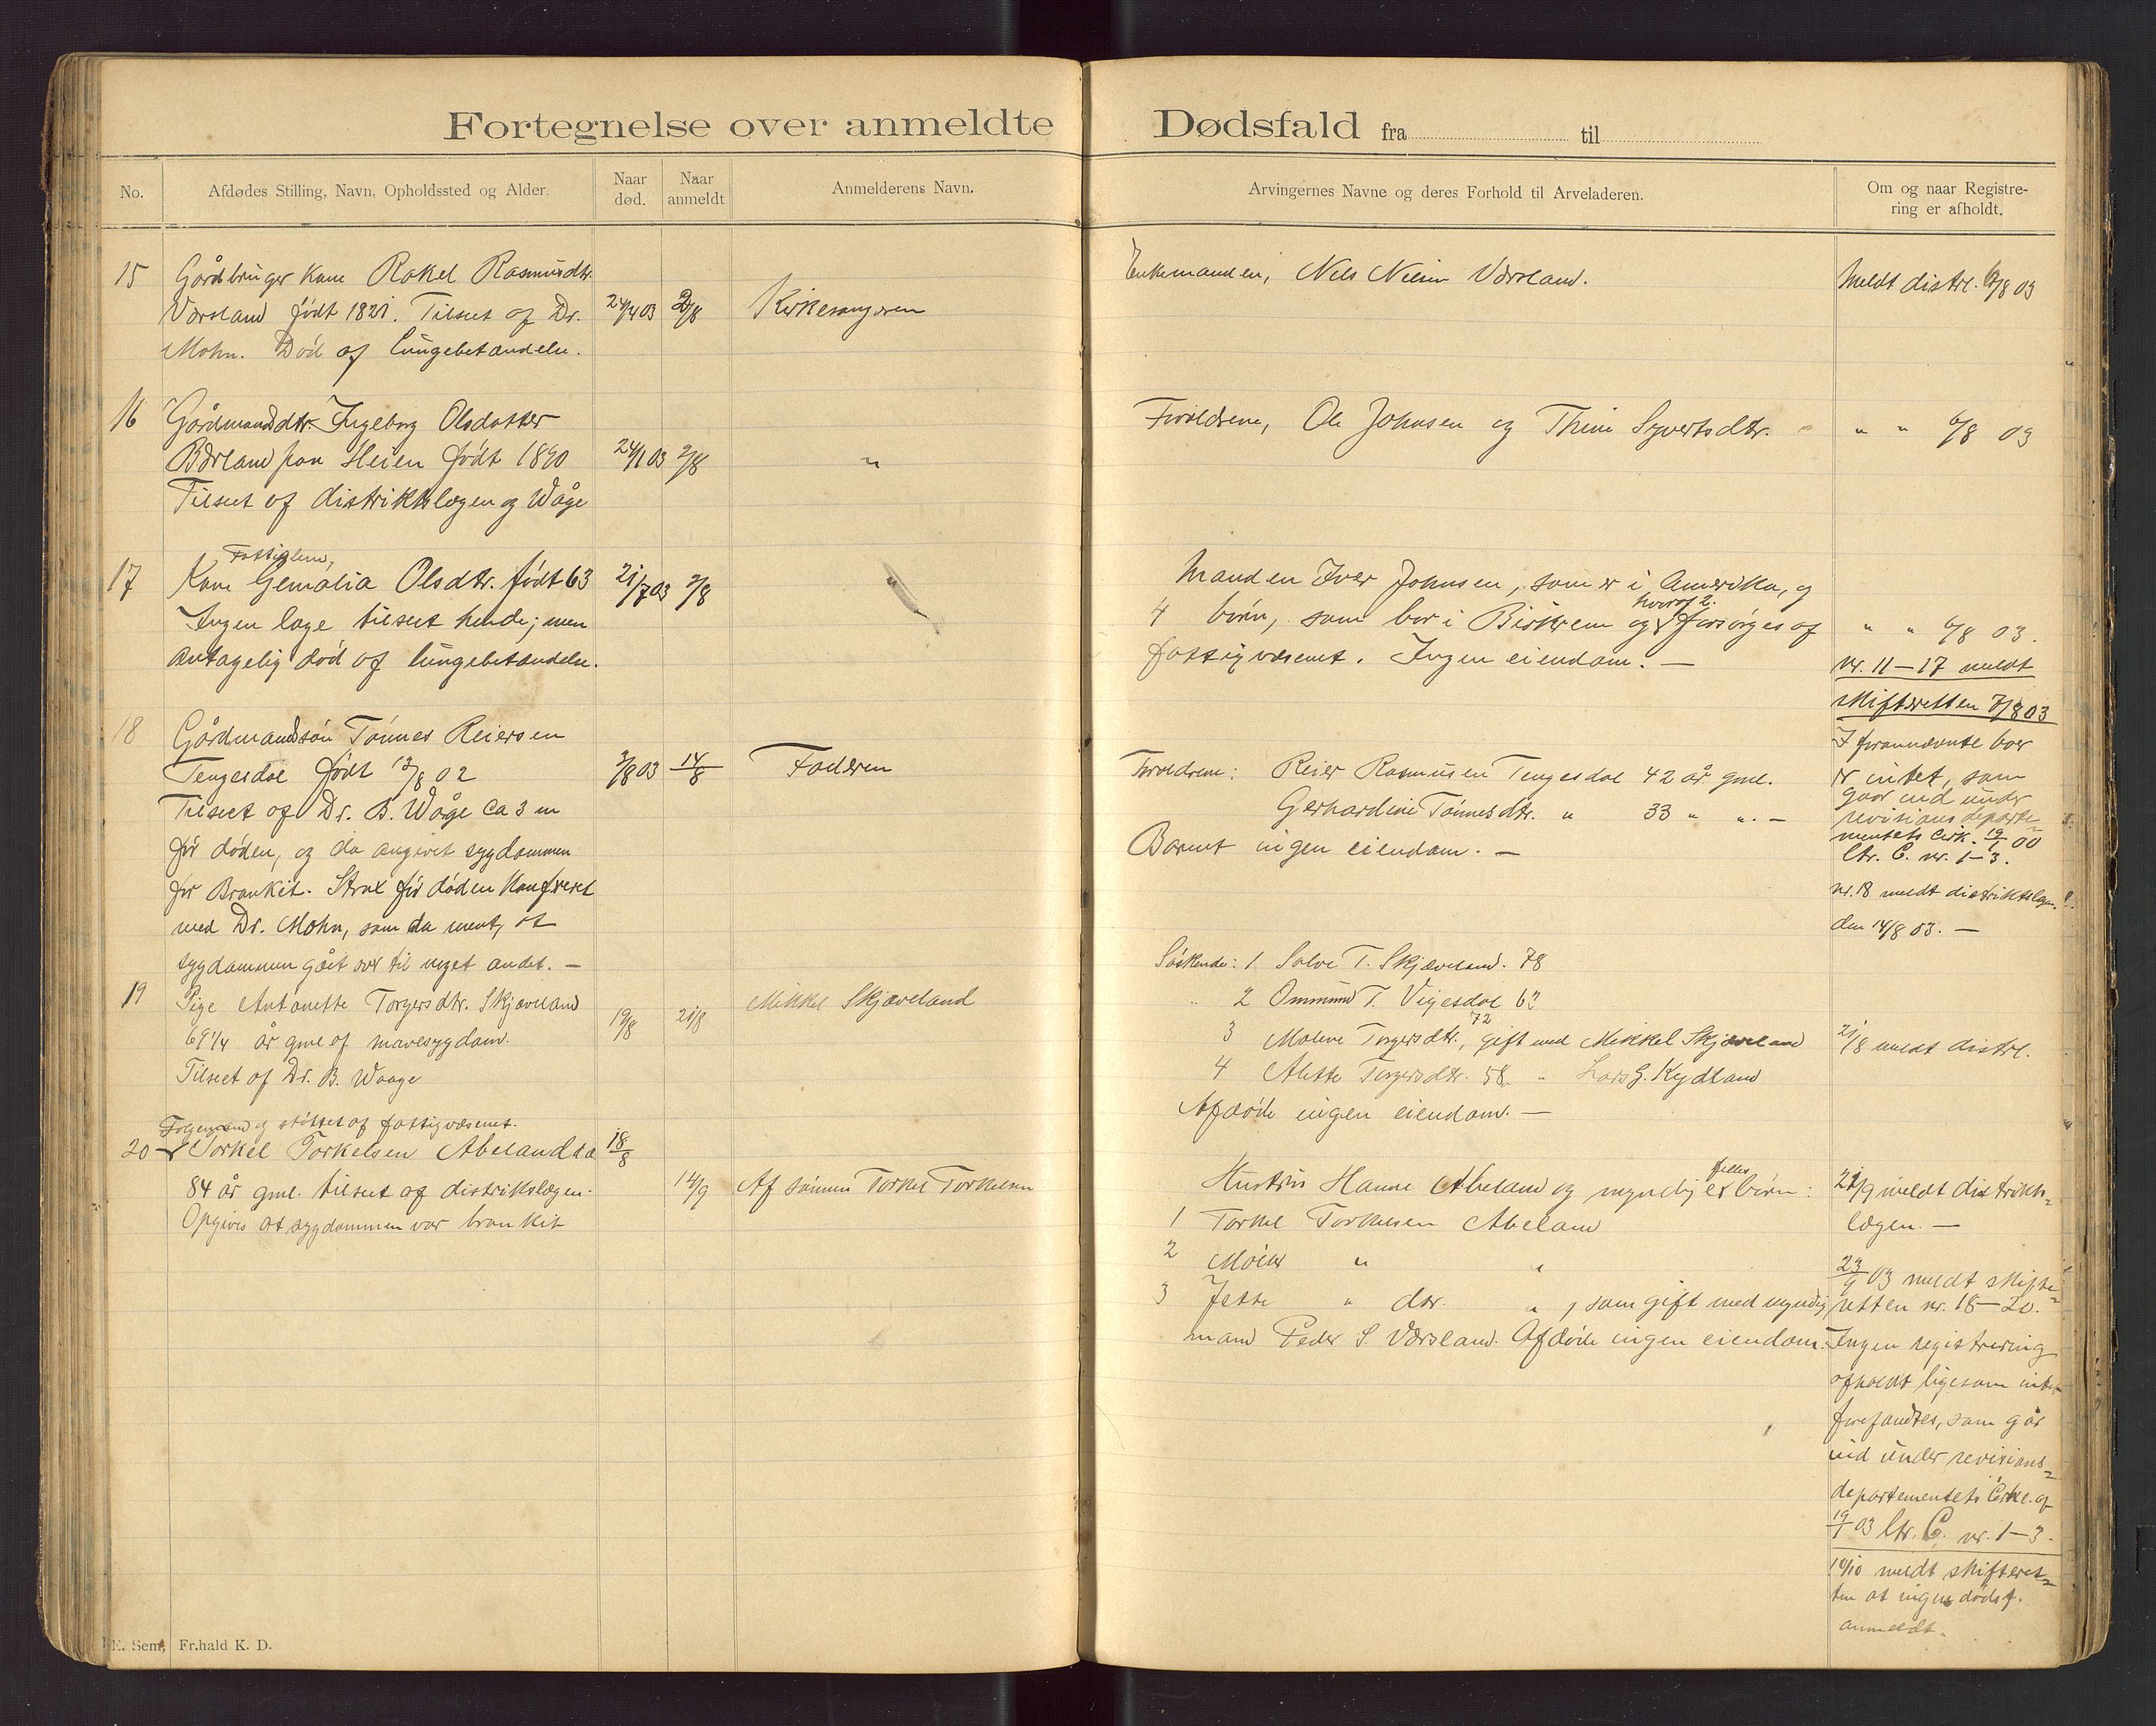 Fortegnelse over anmeldte Dødsfald fra til
No. Afdødes Stilling, Navn, Opholdssted og Alder. Naar død. Naar anmeldt Anmelderens Navn. Arvingernes Navne og deres Forhold til Arveladeren. Om og naar Registre-
ring er afholdt.
15 Gårdbruger kone Rakel Rasmusdtr.
Værsland født 1821. Tilseet af Dr.
Mohn. Død af lungebetændelse.
2/8 Kirkesangeren
Enkemanden, Nels Nilsen Værsland.
Meldt distrl. 6/8 03
16 Gårdmandsdtr. Ingeborg Olsdatter
Bærland paa Heien født 1890
Tilseet af distriktslægen og Wåge
24/1 03 2/8 "
Forældrene, Ole Johnsen og Thine Syvertsdtr.
" " 6/8 03
17 Fattiglem,
Kone Gemalia Olsdtr. født 63
Ingen læge tilseet hende; men
antagelig død af lungebetændelse.
21/7 03 2/8 "
Manden Iver Johnsen, som er i Amerika, og
4 børn, som bor i Birkrem og hvoraf 2 forsørges af
fattigvæsenet. Ingen eiendom. —
" " 6/8 03.
nr. 11–17 meldt
skifteretten 7/8 03
I forannævnte boer
er intet, som
gaar ind under
revisionsdeparte-
mentets Cirk. 19/1 00
ltr. C. nr. 1–3.
18 Gårdmandssøn Tønnes Reiersen
Tengesdal født 13/8 02
Tilseet af Dr. B. Wåge ca 3 m
før døden, og da angivet sygdommen
for Bronkit. Strax før døden konfereret
med Dr. Mohn, som da ment, at
sygdommen gået over til noget andet. —
3/8 03 14/8 Faderen
Forældrene: Reier Rasmusen Tengesdal 42 år gml.
Gerhardine Tønnesdtr. " 33 " ". —
Barnet ingen eiendom. —
nr. 18 meldt distriktslægen
den 14/8 03. —
19 Pige Antonette Torgersdtr. Skjæveland
69 1/4 år gml af mavesygdom.
Tilseet af Dr. B. Waage
19/8 21/8 Mikkel Skjæveland
Søskende: 1 Salve T. Skjæveland. 78
" 2 Ommund T. Vigesdal 63
3 Malene Torgersdtr., 72 gift med Mikkel Skjæveland
4 Alette Torgersdtr. 58. " Lars G. Kydland
Afdøde ingen eiendom. —
21/8 meldt distrl.
Folgemand og støttet af fattigvæsenet.
20 Torkel Torkelsen Abeland
84 år gml. tilseet af distrikslægen.
Opgives at sygdommen var bronkit
18/8 14/9 Af sønnen Torkel Torkelsen
Hustru Hanne Abeland og myndige fælles børn:
1 Torkel Torkelsen Abeland
2 " "
3 Jette " dtr. " , som gift med myndig
mand Peder S. Værsland. Afdøde ingen eiendom.
21/9 meldt distrikts-
lægen. —
23/9 03 meldt skifte-
retten nr. 18–20.
Ingen registrering
afholdt ligesom intet
forefandtes, som går
ind under revisions-
departementets Cirkl. af
19/1 03 ltr. C. nr. 1–3.
14/10 meldt skifteret-
ten at ingen dødsf.
anmeldt.
E. Sem, Fr.hald K. D.